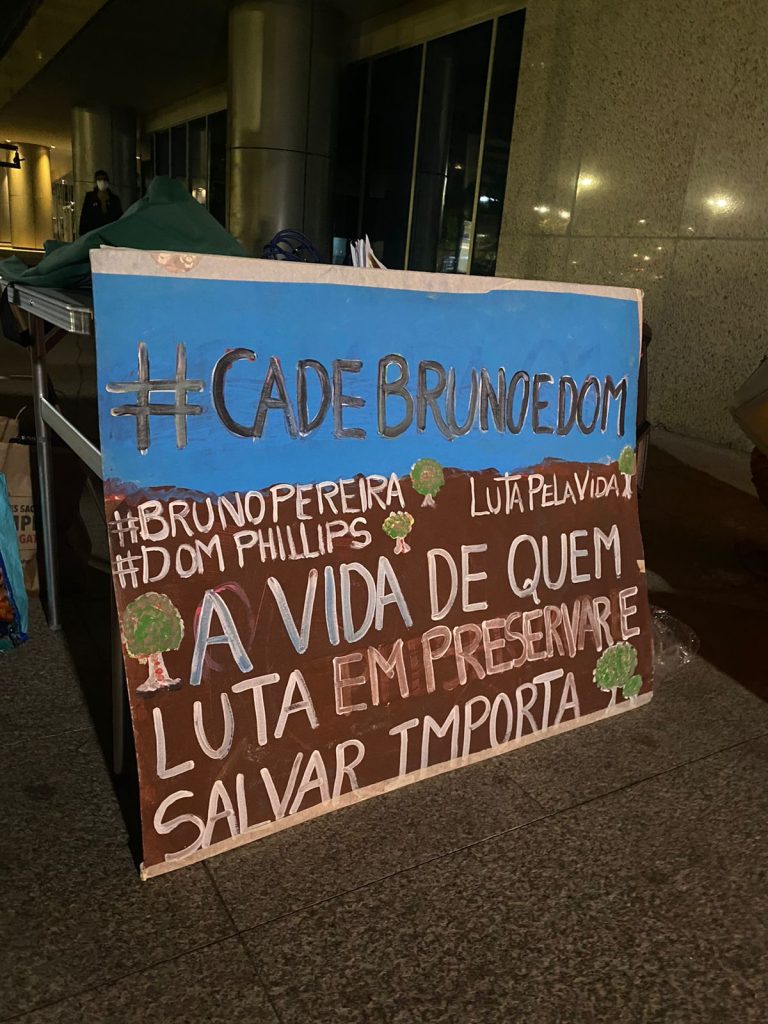 #CADEBRUNOEDOM
#BRUNO PEREIRA
#DOM PHILLIPS
LUTA PELA VIDA
A VIDA DE QUEM
LUTA EM PRESERVAR E
SALVAR IMPORTA